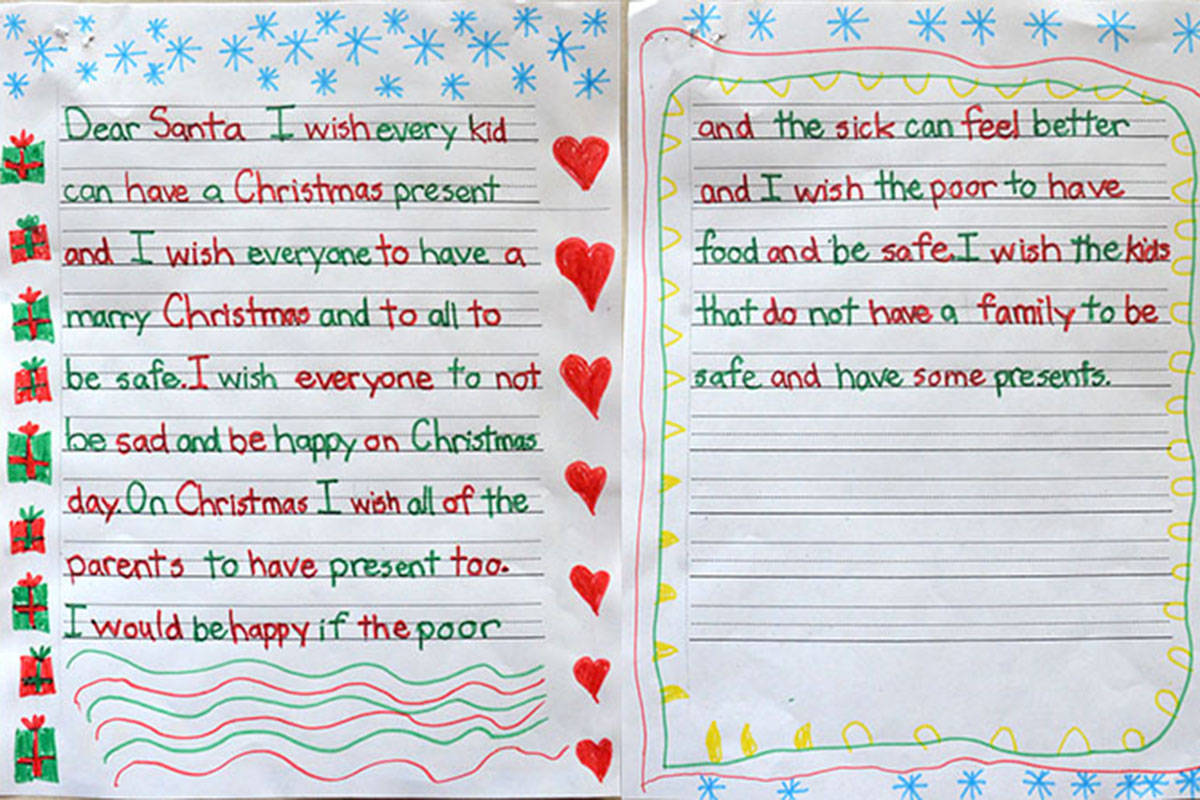 Dear Santa I wish every kid
can have a Christmas present
and I wish everyone to have a
marry Christmas and to all to
be safe. I wish everyone to not
be sad and be happy on Christmas
day. On Christmas I wish all of the
parents to have present too.
I would be happy if the poor
and the sick can feel better
and I wish the poor to have
food and be safe. I wish the kids
that do not have a family to be
safe and have some presents.